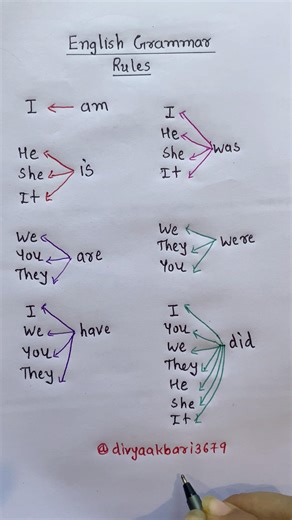 English Grammar
Rules
I am
He
She is
It
I
He
She was
It
We
You are
They
We
They were
You
I
We have
You
They
I
You
We did
They
He
She
It
@divyaakbari3679